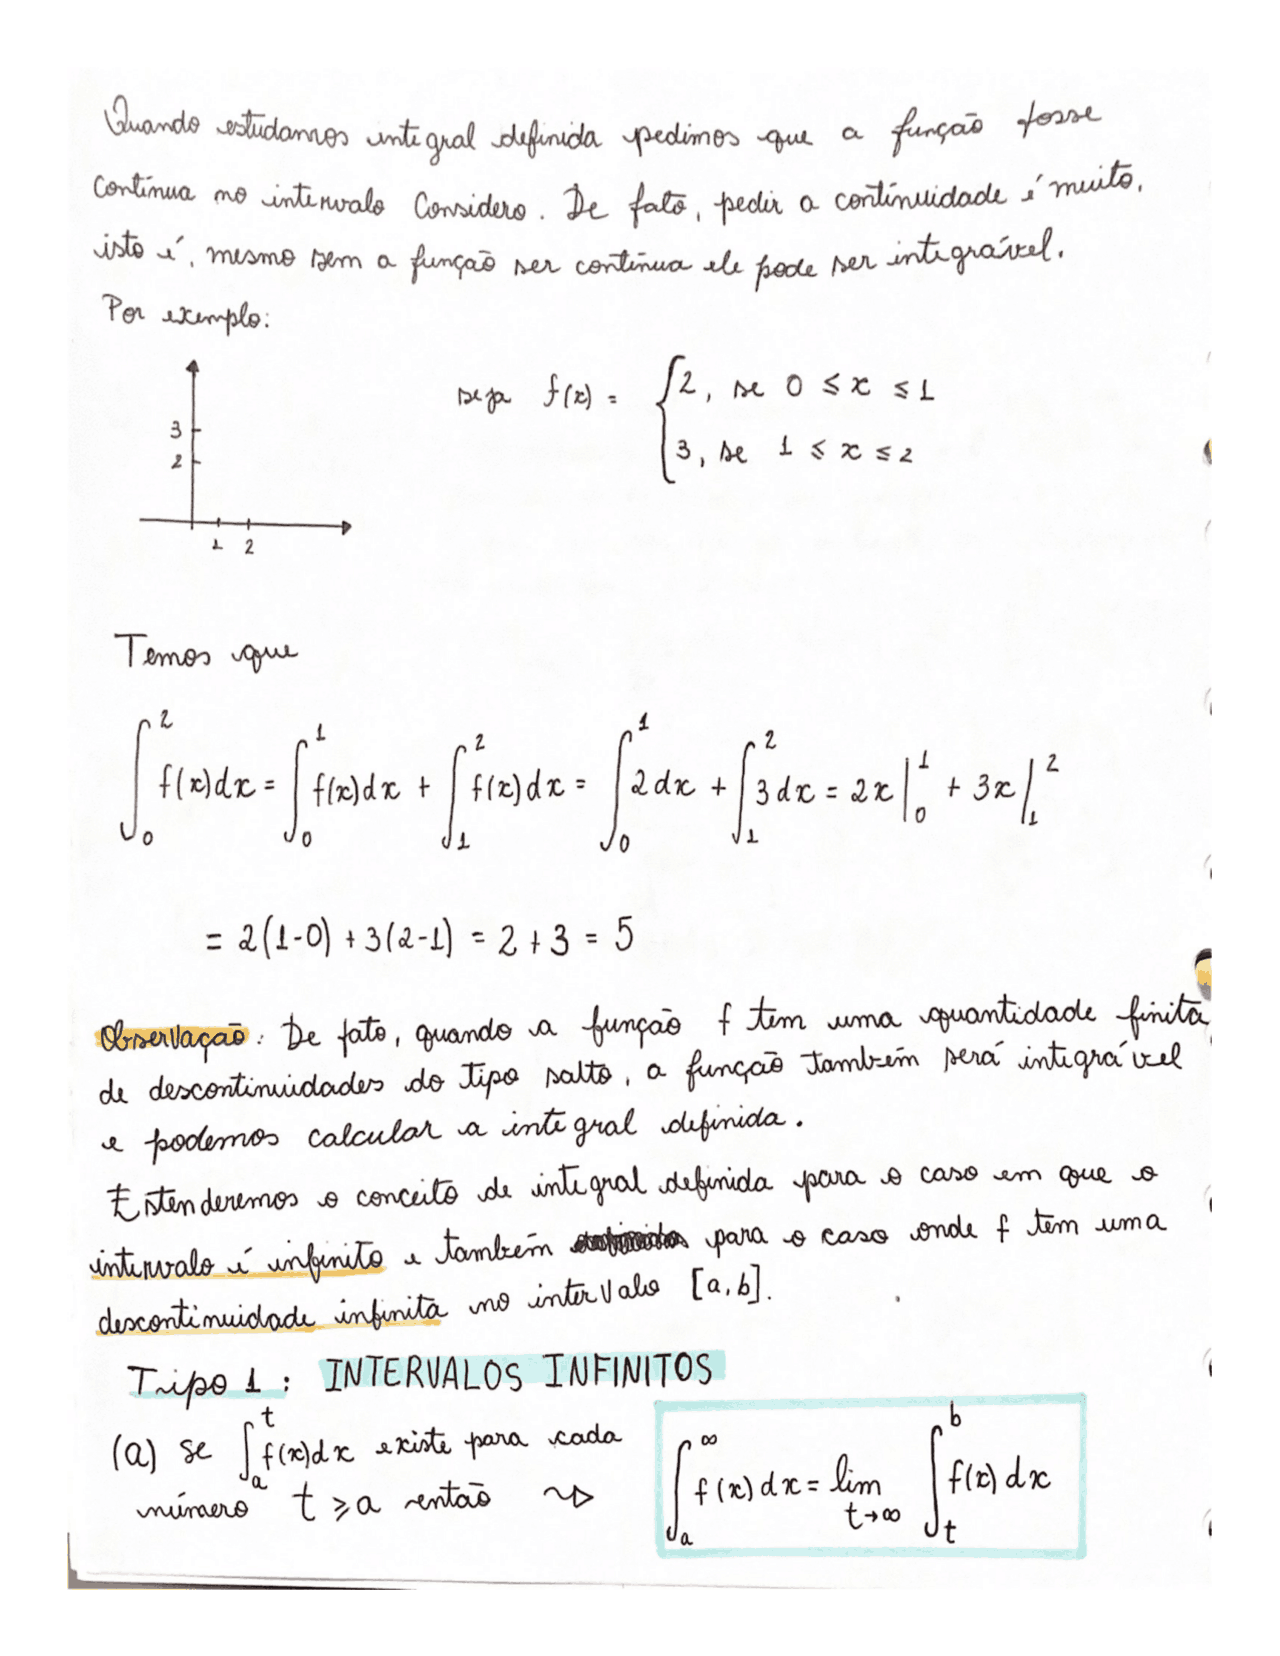 Quando estudamos integral definida pedimos que a função fosse
contínua no intervalo Considero. De fato, pedir a continuidade é muito,
isto é, mesmo sem a função ser contínua ele pode ser integrável.
Por exemplo:
seja f(x) = { 2, se 0 ≤ x ≤ 1
3, se 1 ≤ x ≤ 2
3
2
1 2
Temos que
∫₀² f(x)dx = ∫₀¹ f(x)dx + ∫₁² f(x)dx = ∫₀¹ 2dx + ∫₁² 3dx = 2x|₀¹ + 3x|₁²
= 2(1-0) + 3(2-1) = 2 + 3 = 5
Observação: De fato, quando a função f tem uma quantidade finita
de descontinuidades do tipo salto, a função também será integrável
e podemos calcular a integral definida.
Estenderemos o conceito de integral definida para o caso em que o
intervalo é infinito e também para o caso onde f tem uma
descontinuidade infinita no intervalo [a,b].
Tipo 1: INTERVALOS INFINITOS
(a) se ∫ₐᵗ f(x)dx existe para cada
número t ≥ a então
∫ₐ^∞ f(x)dx = lim t→∞ ∫ₜᵇ f(x)dx